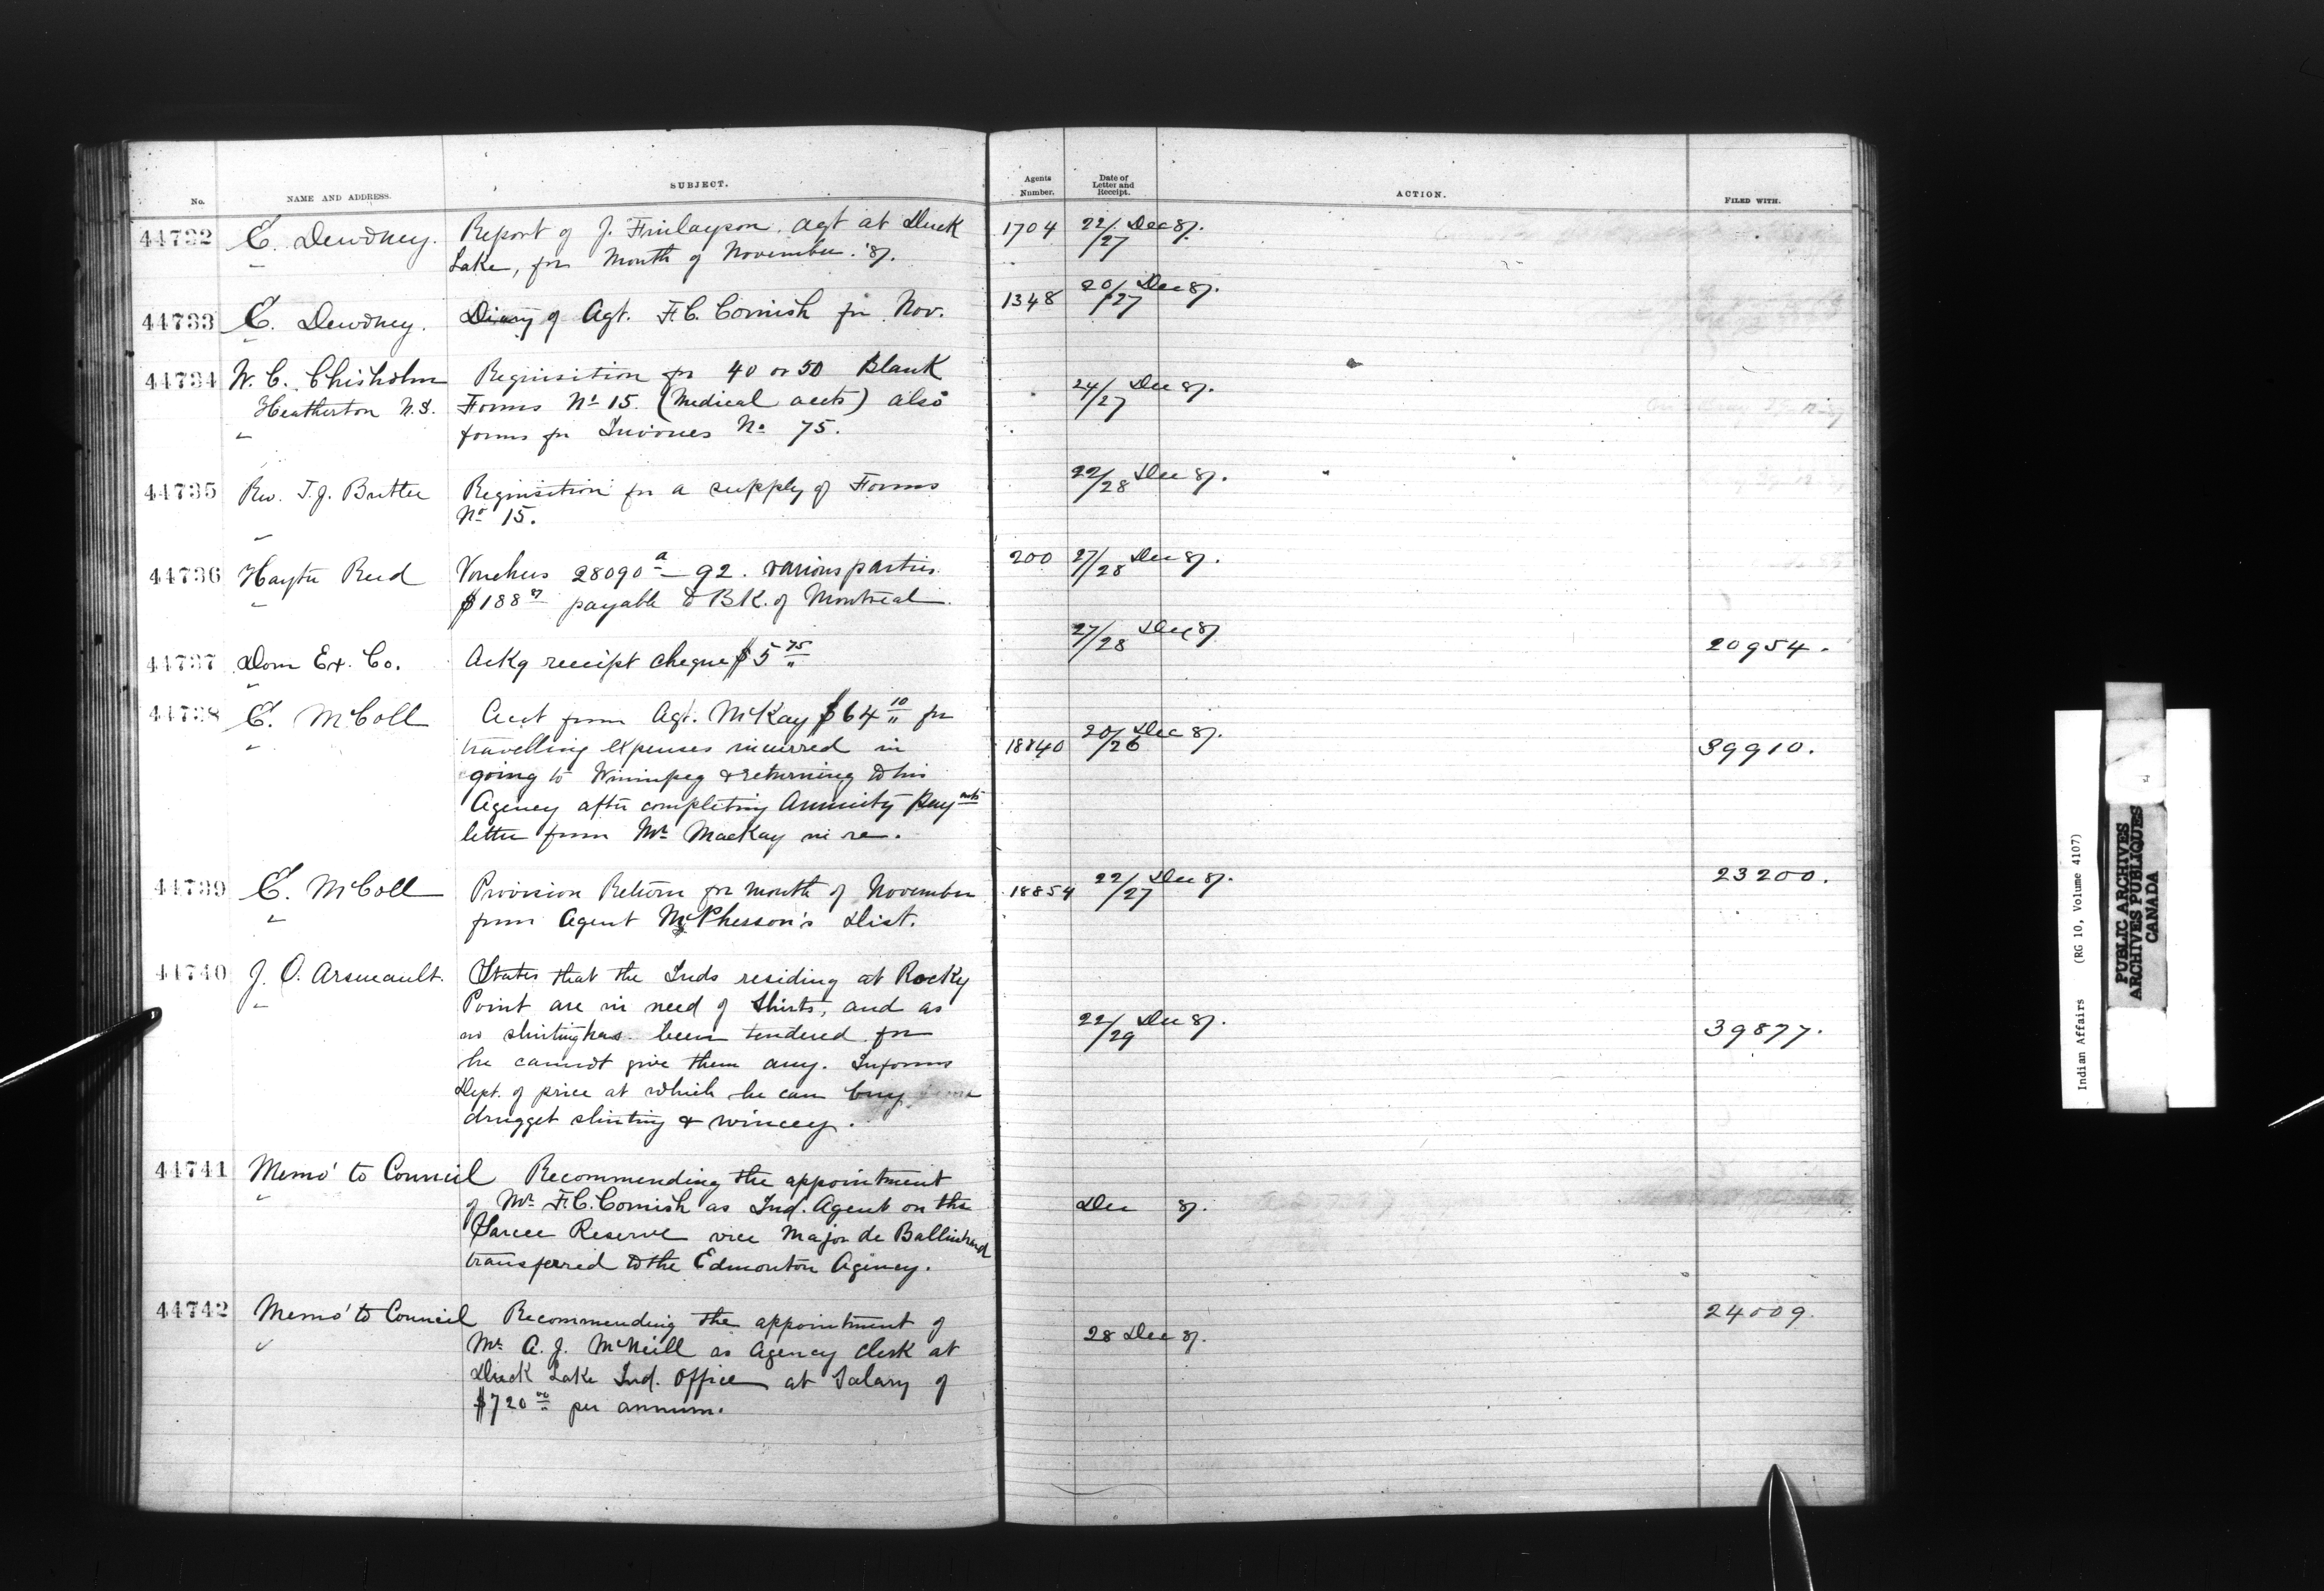 No. NAME AND ADDRESS. SUBJECT. Agents Number. Date of Letter and Receipt. ACTION. FILED WITH.
44732 E. Dewdney. Report of J. Finlayson. Agt at Duck 1704 22/27 Dec 87.
Lake, for Month of November. '87.
44733 E. Dewdney. Diary of Agt. F.C. Cornish for Nov. 1348 20/27 Dec 87.
44734 W. C. Chisholm Requisition for 40 or 50 Blank 24/27 Dec 87.
Heatherton N.S. Forms No 15. (Medical accts) also
forms for Invoices No 75.
44735 Rev. T.J. Butler Requisition for a supply of Forms 22/28 Dec 87.
No 15.
44736 Hayter Reed Vouchers 28090a – 92. various parties 200 27/28 Dec 87.
$188 87 payable to BK. of Montreal.
44737 Dom Ex. Co. Ackg receipt cheque $5 75 27/28 Dec 87 20954.
44738 E. McColl Acct from Agt. McKay $64 10 for
travelling expenses incurred in 18840 20/26 Dec 87. 39910.
going to Winnipeg & returning to his
Agency after completing Annuity Paymts
letter from Mr MacKay in re.
44739 E. McColl Provision Return for month of November 18854 22/27 Dec 87. 23200.
from Agent McPherson's Dist.
44740 J. O. Arsenault. States that the Inds residing at Rocky
Point are in need of Shirts, and as
no shirting has been tendered for 22/29 Dec 87. 39877.
he cannot give them any. Informs
Dept. of price at which he can buy
drugget shirting & wincey.
44741 Memo' to Council Recommending the appointment
of Mr F.C. Cornish as Ind. Agent on the Dec 87.
Sarcee Reserve vice Major de Balinhard
transferred to the Edmonton Agency.
44742 Memo' to Council Recommending the appointment of 28 Dec 87. 24009.
Mr A. J. McNeill as Agency Clerk at
Duck Lake Ind. Office at Salary of
$720 00 per annum.
Indian Affairs (RG 10, Volume 4107)
PUBLIC ARCHIVES
ARCHIVES PUBLIQUES
CANADA